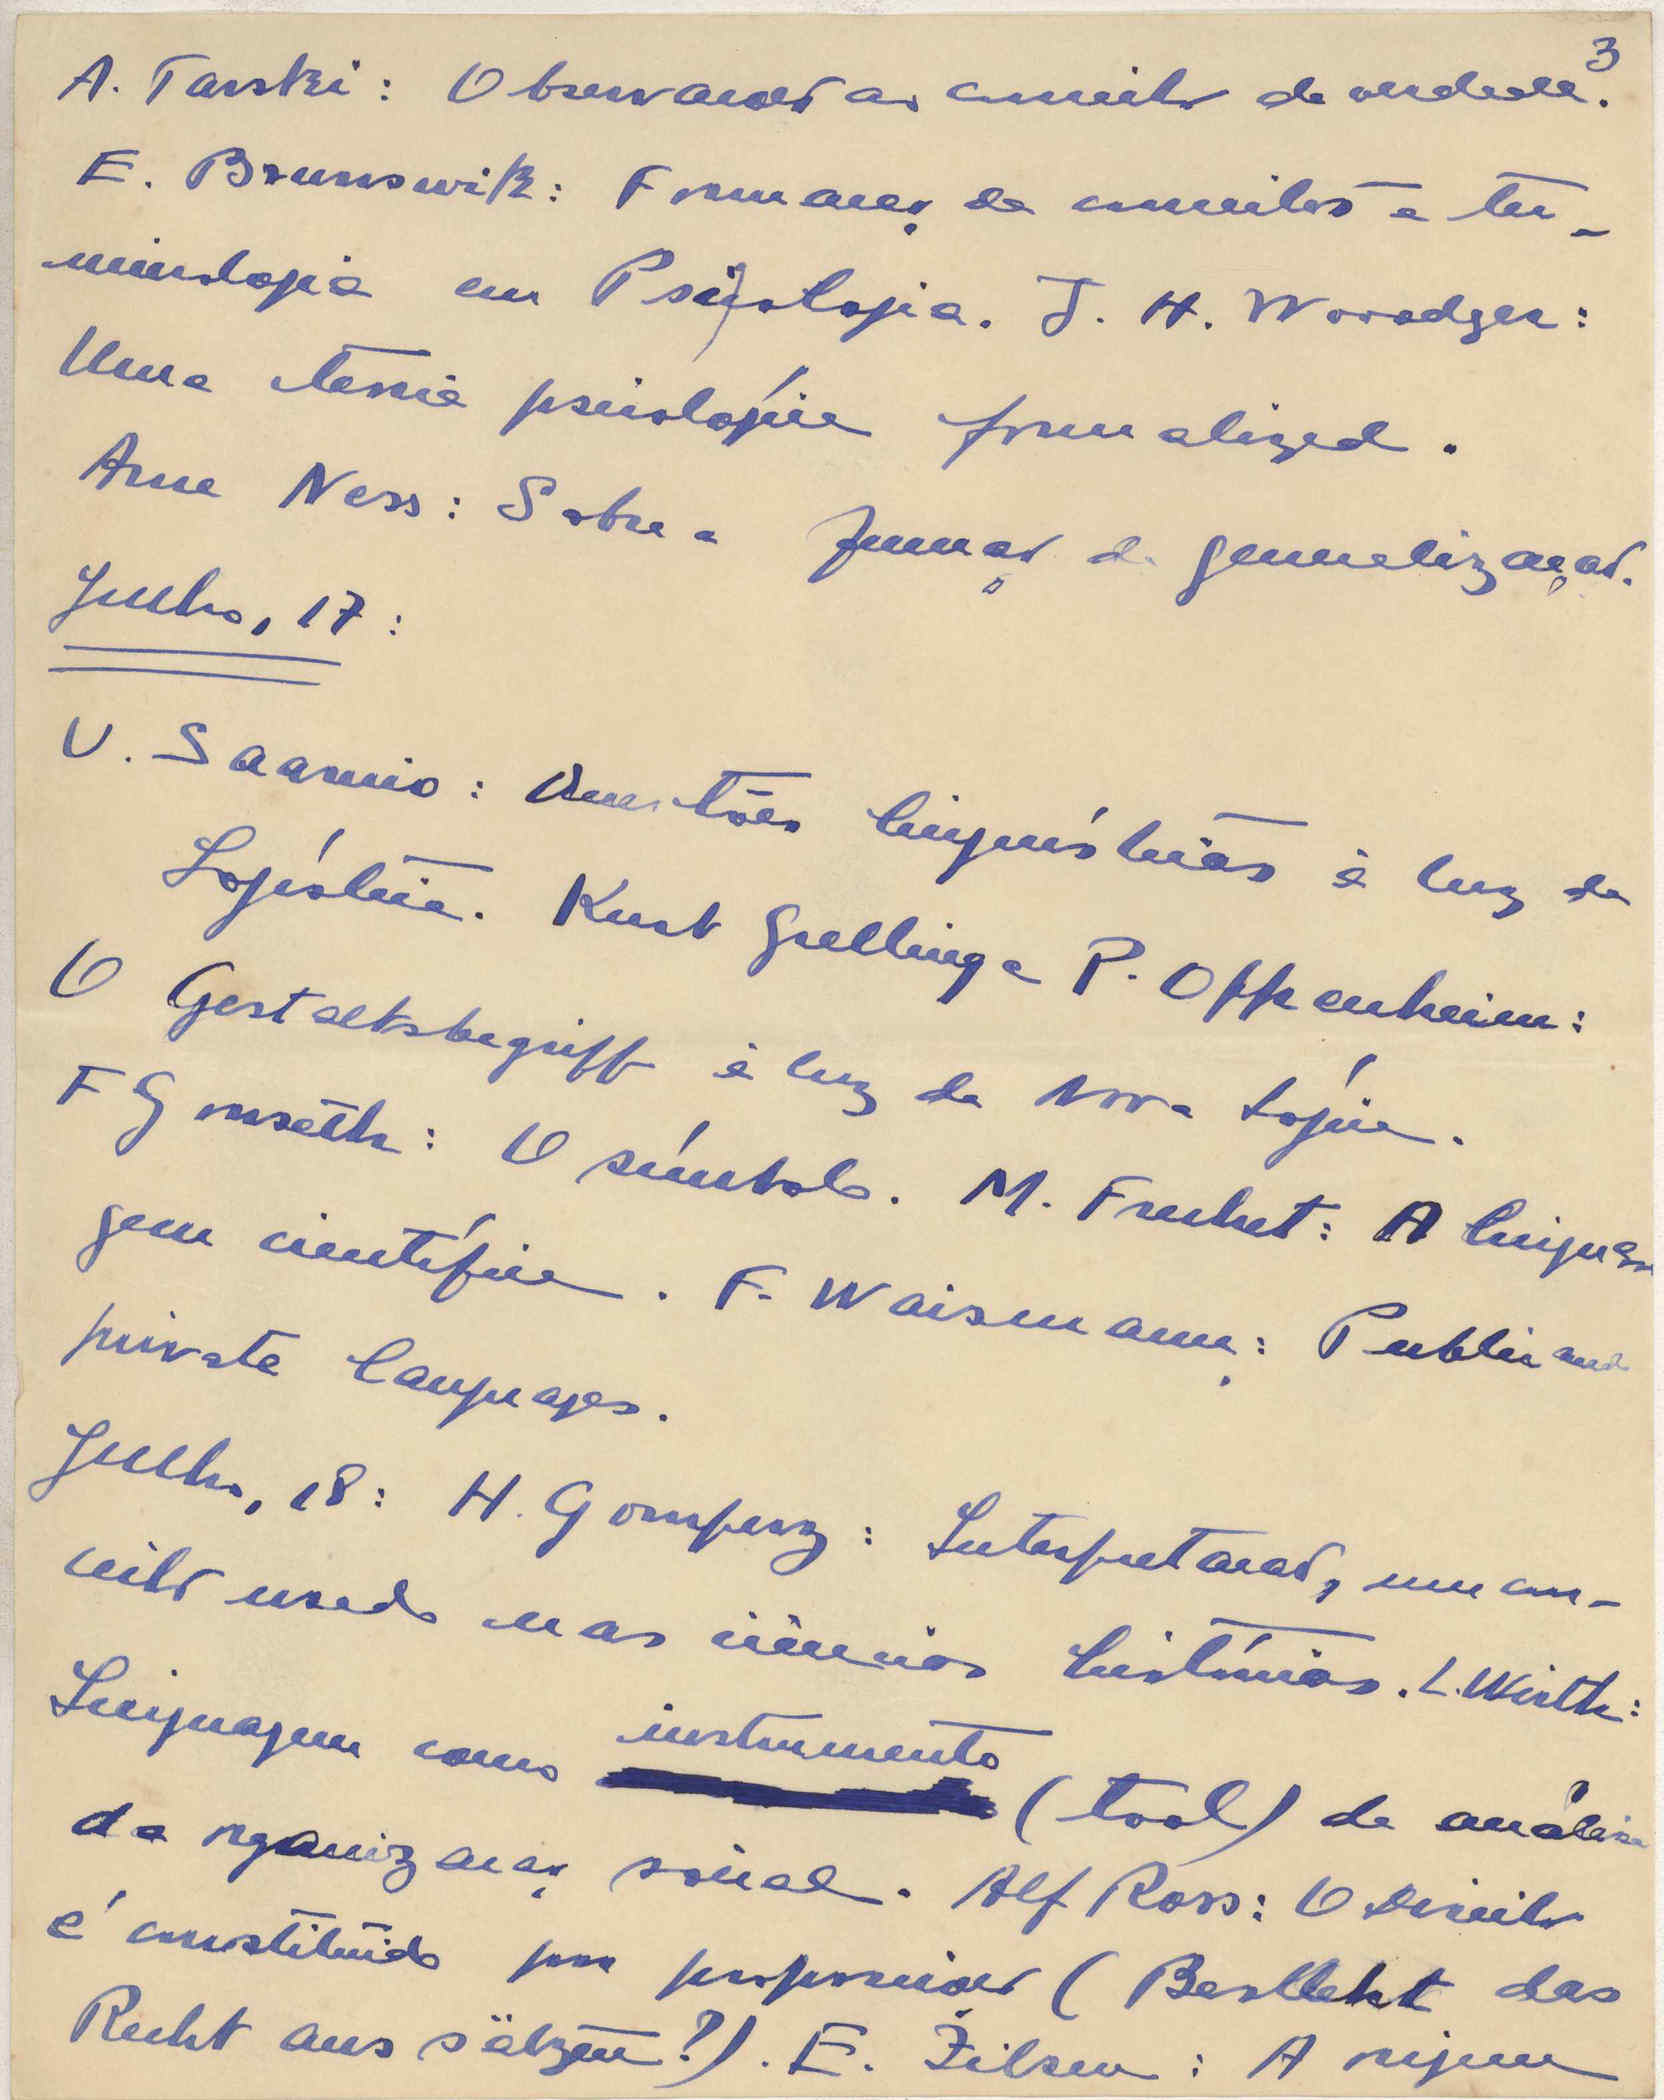 3
A. Tarski: Observações ao conceito de verdade.
E. Brunswik: Formação de conceitos e ter-
minologia em Psicologia. J. H. Woodger:
Uma teoria psicológica formalizada.
Arne Ness: Sobre a função da generalização.
Julho, 17:
U. Saarnio: Questões linguísticas à luz da
Logística. Kurt Grelling e P. Oppenheim:
O Gestaltsbegriff à luz da nova Lógica.
F Gonseth: O símbolo. M. Frechet: A lingua
gem científica. F. Waismann: Public and
private languages.
Julho, 18: H. Gomperz: Interpretação, um con-
ceito usado nas ciências históricas. L. Wirth:
Linguagem como instrumento (tool) de análise
da organização social. Alf Ross: O Direito
é constituído por proposições (Besteht das
Recht aus sätzen?). E. Zilsen: A origem